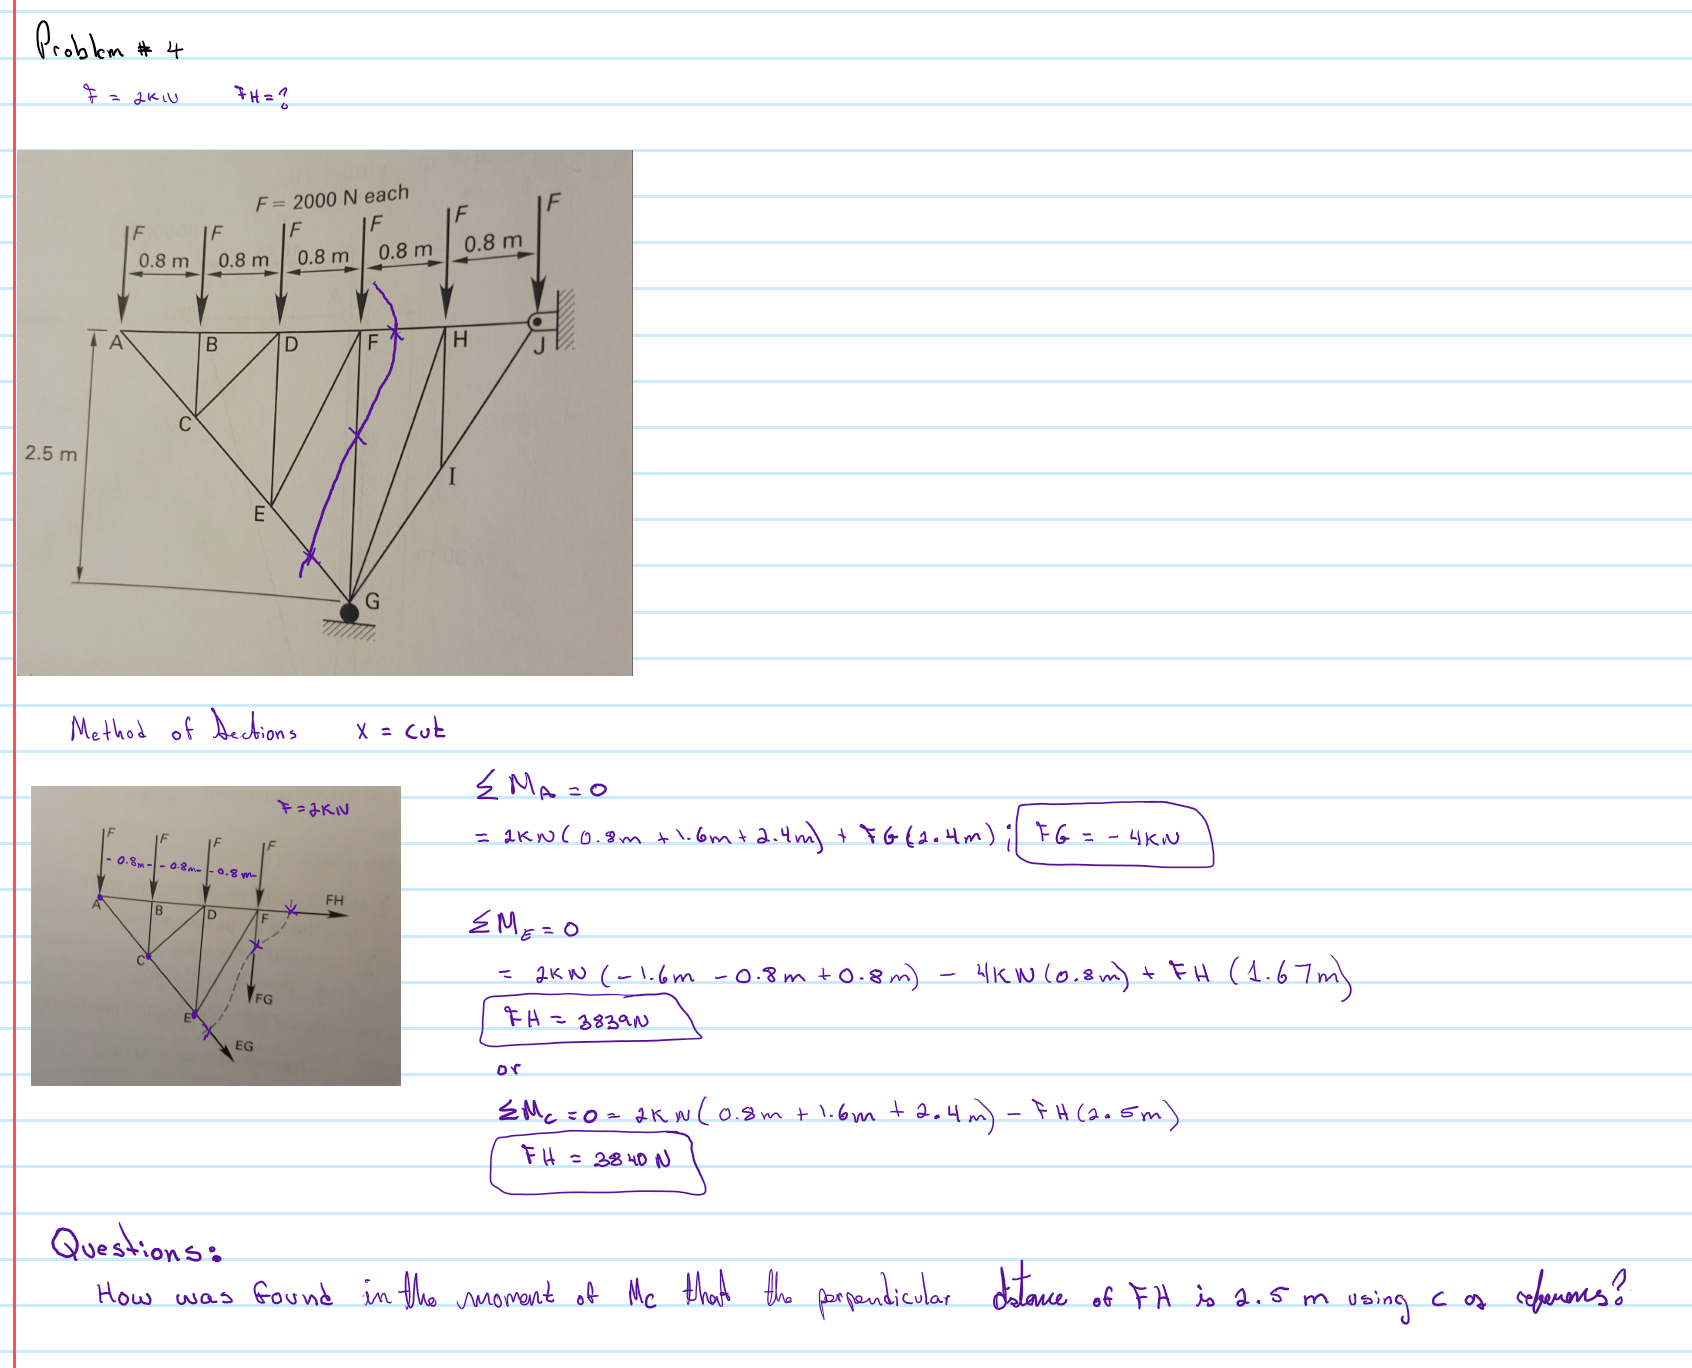 Problem # 4
F = 2KN FH = ?
F = 2000 N each
F F F F F F
0.8 m 0.8 m 0.8 m 0.8 m 0.8 m
A B D F H J
C
2.5 m
I
E
G
Method of Sections X = cut
F = 2KN
F F F F
- 0.8m - - 0.8m - - 0.8m -
A B D F FH
C
FG
E
EG
Σ M_A = 0
= 2KN ( 0.8m + 1.6m + 2.4m ) + FG ( 2.4m ) ; FG = - 4KN
Σ M_E = 0
= 2KN ( - 1.6m - 0.8m + 0.8m ) - 4KN ( 0.8m ) + FH ( 1.67m )
FH = 3839N
or
Σ M_C = 0 = 2KN ( 0.8m + 1.6m + 2.4m ) - FH ( 2.5m )
FH = 3840 N
Questions:
How was found in the moment of Mc that the perpendicular distance of FH is 2.5 m using C as reference?